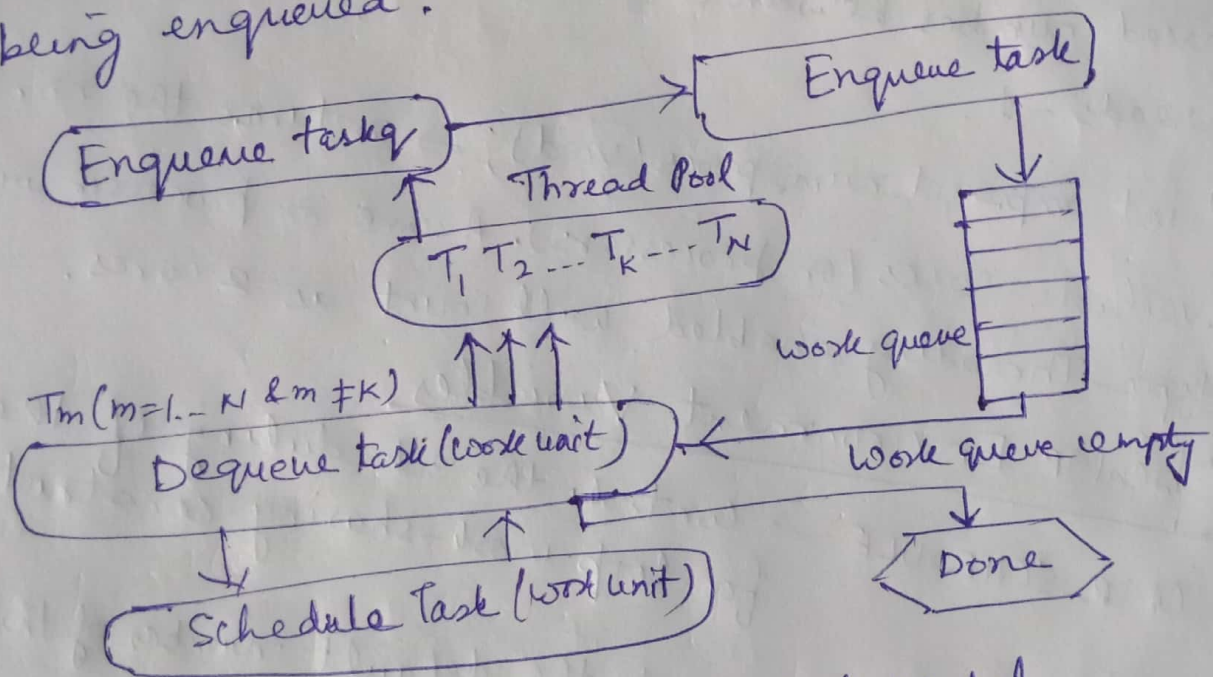 being enqueued.
Enqueue task
Enqueue taskq
Thread Pool
T1 T2 ... TK ... TN
work queue
Tm (m=1.. N & m ≠ K)
Dequeue task (work unit)
work queue empty
Done
Schedule Task (work unit)